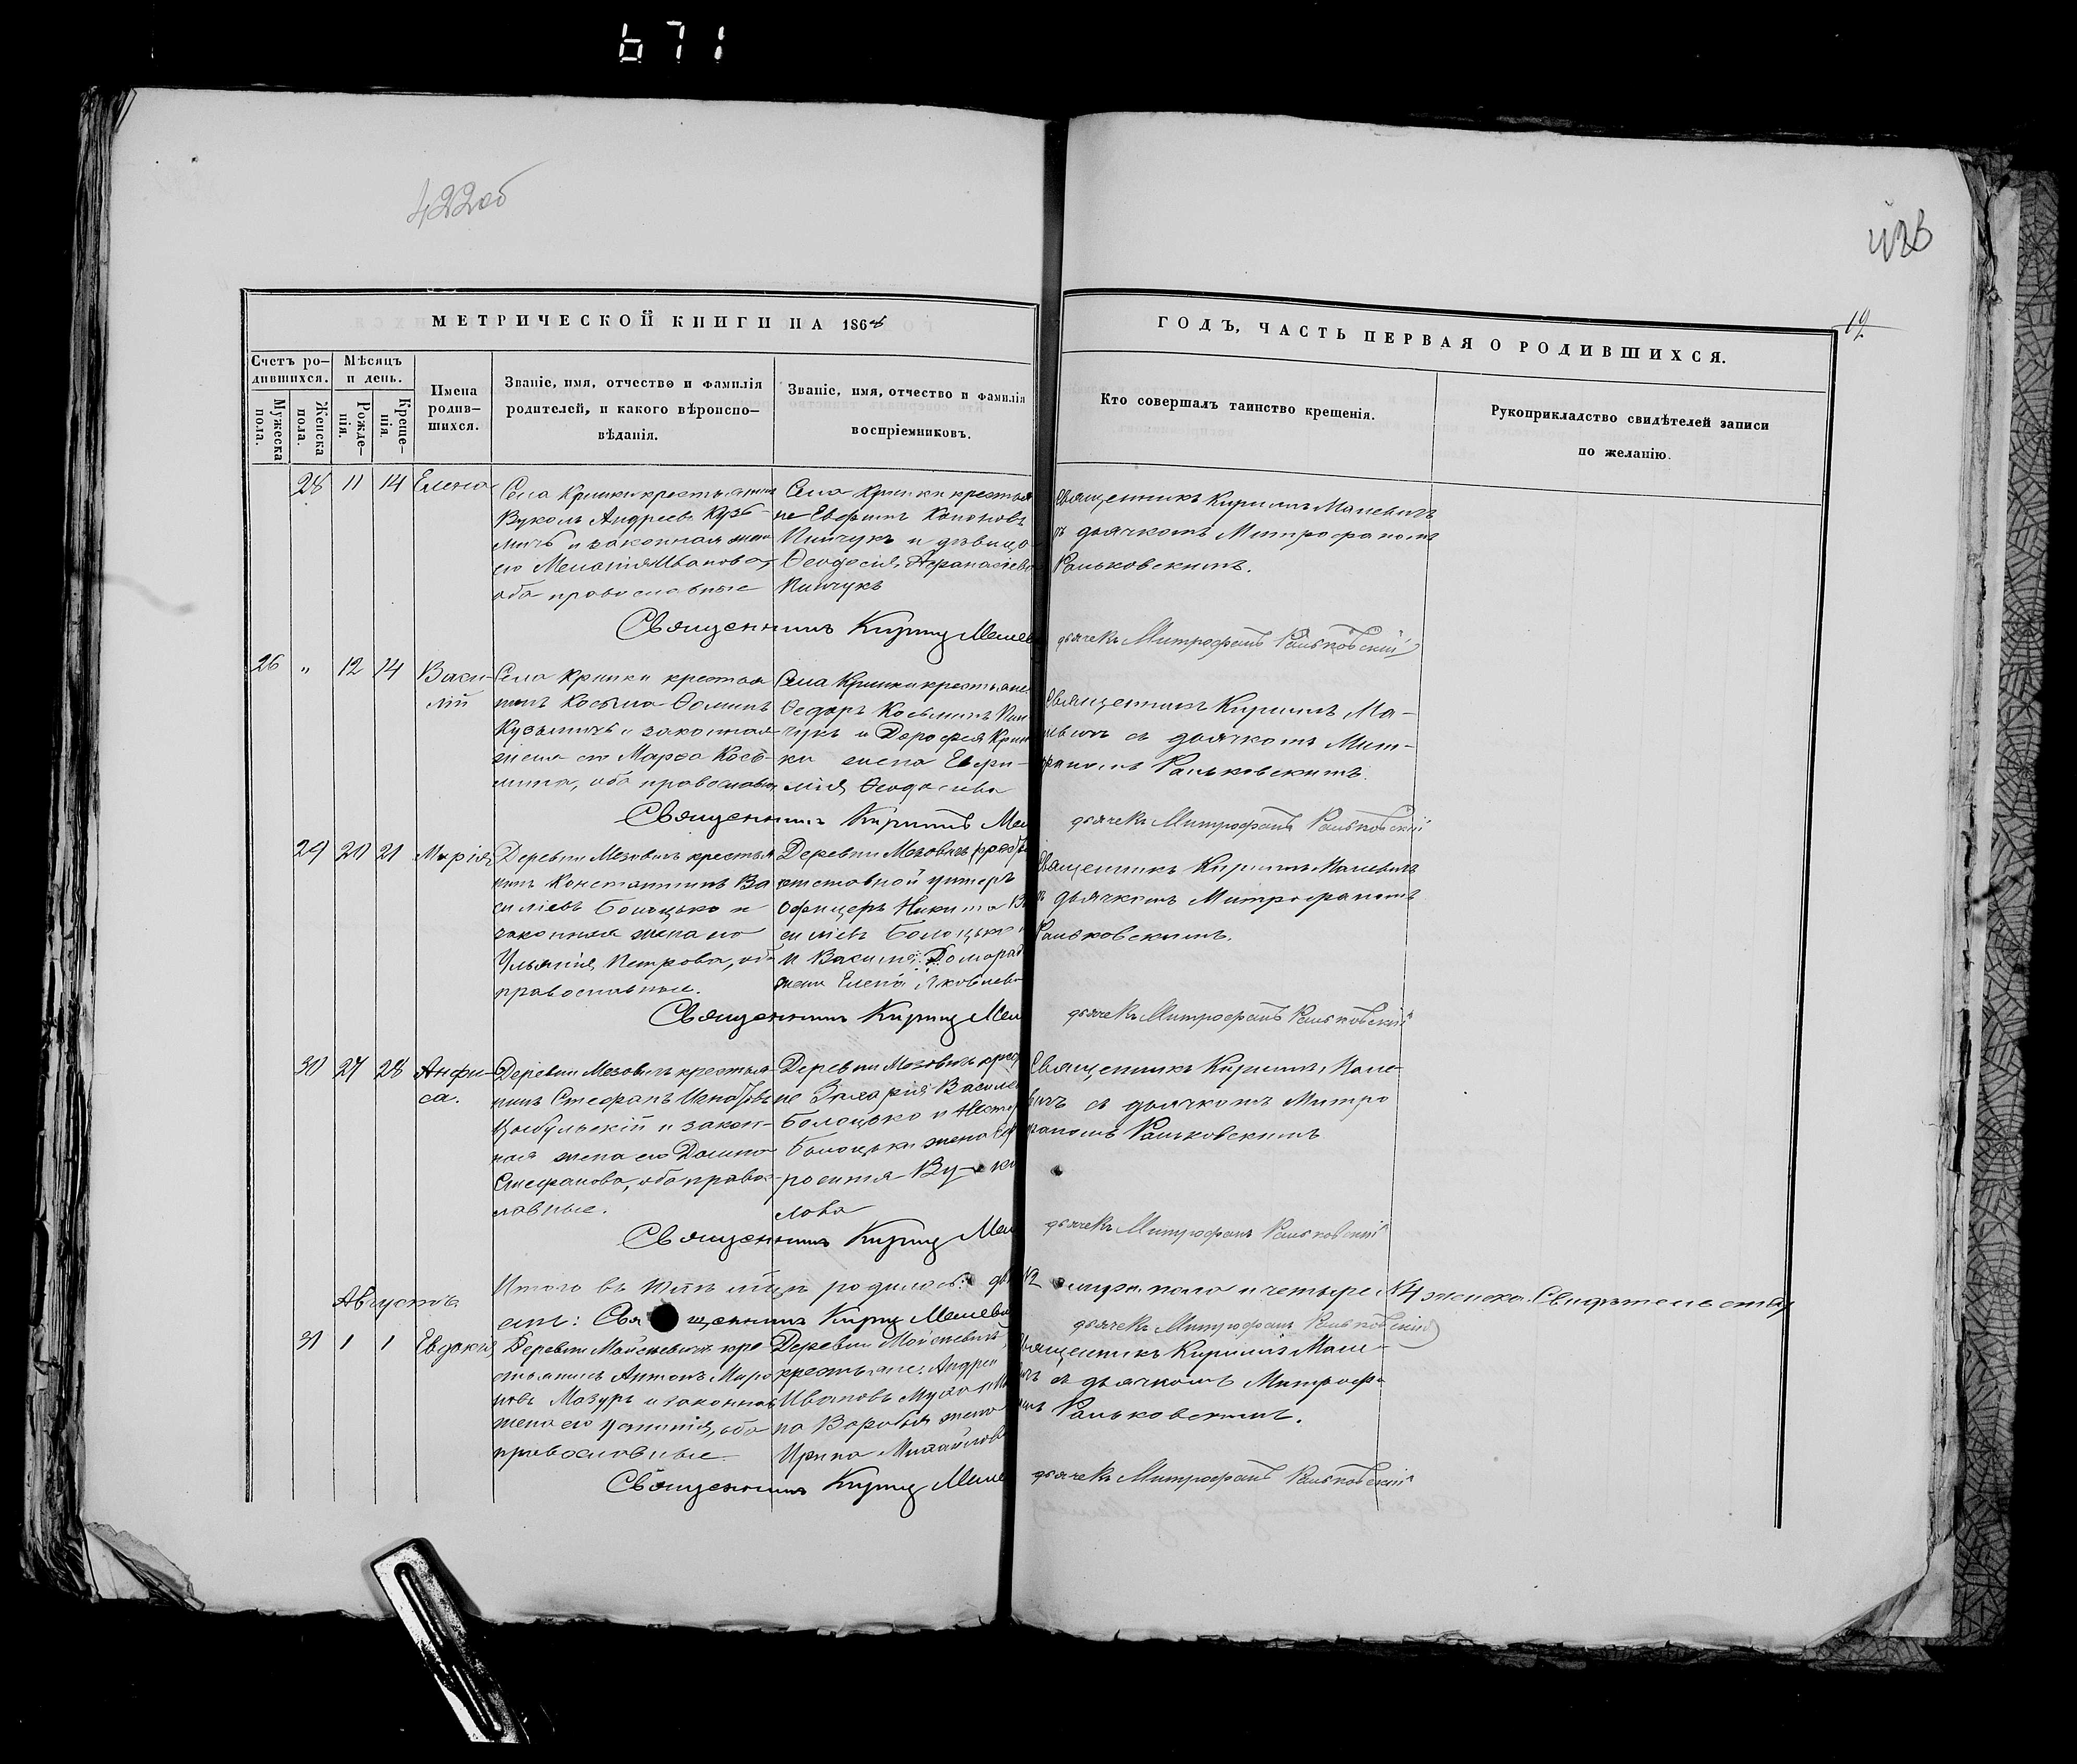 671
422об
423
19
МЕТРИЧЕСКОЙ КНИГИ НА 186
ГОДЪ, ЧАСТЬ ПЕРВАЯ О РОДИВШИХСЯ.
Счетъ ро-
дившихся.
Мужеска
пола.
Женска
пола.
Мѣсяцъ
и день.
Рожде-
нія.
Креще-
нія.
Имена
родив-
шихся.
Званіе, имя, отчество и фамилія
родителей, и какого вѣроиспо-
вѣданія.
Званіе, имя, отчество и фамилія
воспріемниковъ.
Кто совершалъ таинство крещенія.
Рукоприкладство свидѣтелей записи
по желанію.
28 11 14 Елена
Села Кринки крестьянинъ
Вуколъ Андреевъ Кузь-
мичъ и законная жена
его Меланія Иванова,
оба православные
Села Кринки крестья
не Евфимъ Кононовъ
Пинчукъ и дѣвица
Ѳеодосія Афанасіева
Пинчукъ
Священникъ Кирилъ Малевичъ
съ дьячкомъ Митрофаномъ
Раньковскимъ.
Священникъ Кирилъ
дьячекъ Митрофанъ Раньковскій
26 " 12 14 Васи-
лій
Села Кринки крестья
нинъ Косьма Ѳоминъ
Кузьмичъ и законная
жена его Марѳа Кось-
мина, оба православн
Села Кринки крестьяне
Ѳедоръ Косьминъ Пин
чукъ и Дорофея Крин
ки жена Евфи-
мія Ѳеодосіева
Священникъ Кирилъ Ма-
левичъ съ дьячкомъ Мит-
рофаномъ Раньковскимъ.
Священникъ Кирилъ
дьячекъ Митрофанъ Раньковскій
29 20 21 Марія
Деревни Мезовичъ крестья
нинъ Константинъ Ва
силіевъ Болоцько и
законная жена его
Ульянія Петрова, оба
православные.
Деревни Мезовичъ
отставной унтеръ
офицеръ Никита
силіевъ Болоцько
и Василія
жена Елена Яковлева
Священникъ Кирилъ Малевичъ
съ дьячкомъ Митрофаномъ
Раньковскимъ.
Священникъ Кирилъ
дьячекъ Митрофанъ Раньковскій
30 27 28 Анфи-
са.
Деревни Мезовичъ крестья-
нинъ Стефанъ
Цыбульскій и закон-
ная жена его Домна
Стефанова, оба правос-
лавные.
Деревни Мезовичъ
не Захарія Василіев
Болоцько и
Болоцьки жена
росинія Ву-ко
лова
Священникъ Кирилъ Мале-
вичъ съ дьячкомъ Митро
фаномъ Раньковскимъ
Священникъ Кирилъ
дьячекъ Митрофанъ Раньковскій
Итого въ родилось: №2 мужс. пола и четыре №4 женска. Свидѣтельству
емъ: Священникъ Кирилъ Малевичъ
дьячекъ Митрофанъ Раньковскій
Августъ
31 1 1 Евдокія
Деревни Мойсеевичъ кре
стьянинъ Антонъ Миро
новъ Мазуръ и законная
жена его Устинія, оба
православные
Деревни Мойсеевичъ
крестьяне: Андрей
Ивановъ Муха
на Воробья жена
Ирина Михайлова
Священникъ Кирилъ Мале-
вичъ съ дьячкомъ Митрофа
номъ Раньковскимъ.
Священникъ Кирилъ
дьячекъ Митрофанъ Раньковскій